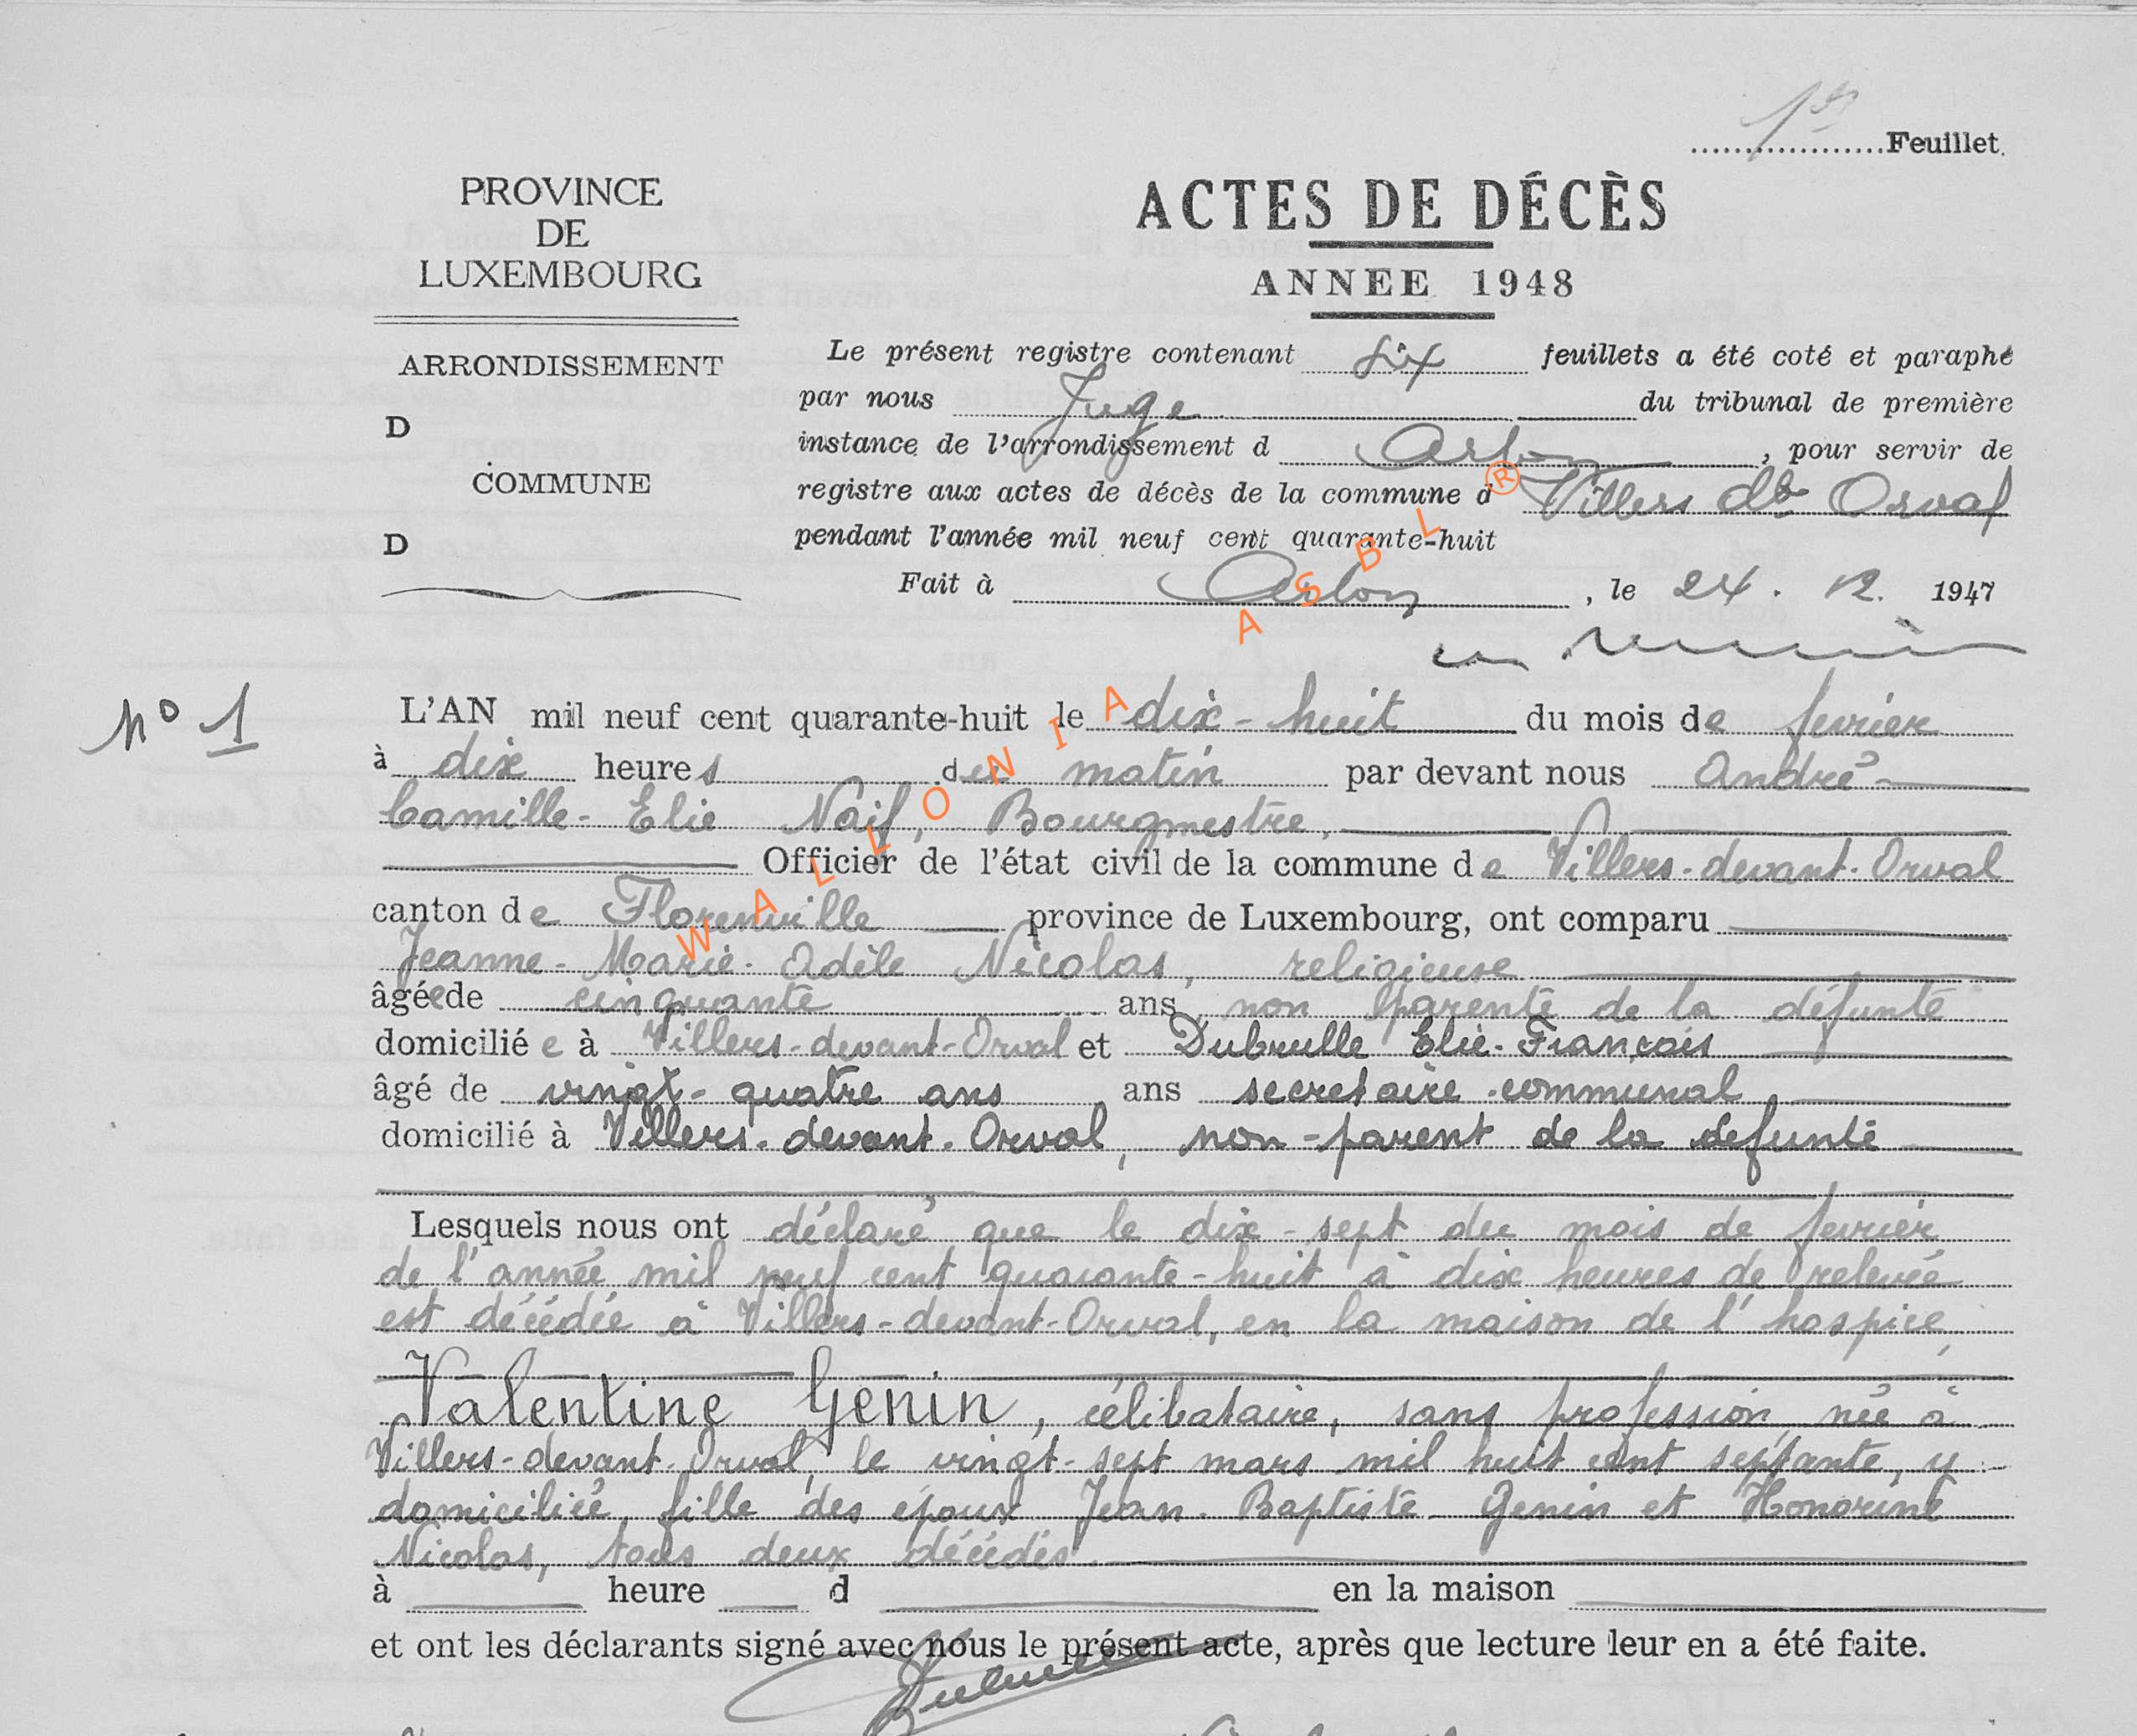 1er Feuillet.
PROVINCE
DE
LUXEMBOURG
ARRONDISSEMENT
D
COMMUNE
D
ACTES DE DÉCÈS
ANNEE 1948
Le présent registre contenant six feuillets a été coté et paraphé
par nous Juge du tribunal de première
instance de l'arrondissement d Arlon, pour servir de
registre aux actes de décès de la commune d Villers dt Orval
pendant l'année mil neuf cent quarante-huit
Fait à Arlon, le 24. 12. 1947
WALLONIA ASBL ®
No 1
L'AN mil neuf cent quarante-huit le dix-huit du mois de fevrier
à dix heures du matin par devant nous André
Camille-Elie Naif, Bourgmestre,
Officier de l'état civil de la commune de Villers-devant-Orval
canton de Florenville province de Luxembourg, ont comparu
Jeanne-Marie-Adèle Nicolas, religieuse
âgéede cinquante ans, non parente de la défunte
domicilié e à Villers-devant-Orval et Dubrulle Elie-François
âgé de vingt-quatre ans ans secretaire communal
domicilié à Villers-devant-Orval, non-parent de la defunte
Lesquels nous ont déclaré que le dix-sept du mois de fevrier
de l'année mil neuf cent quarante-huit à dix heures de relevée
est décédée à Villers-devant-Orval, en la maison de l'hospice,
Valentine Genin, célibataire, sans profession, née à
Villers-devant-Orval, le vingt-sept mars mil huit cent septante, y
domiciliée, fille des époux Jean-Baptiste Genin et Honorine
Nicolas, tous deux décédés.
à heure d en la maison
et ont les déclarants signé avec nous le présent acte, après que lecture leur en a été faite.